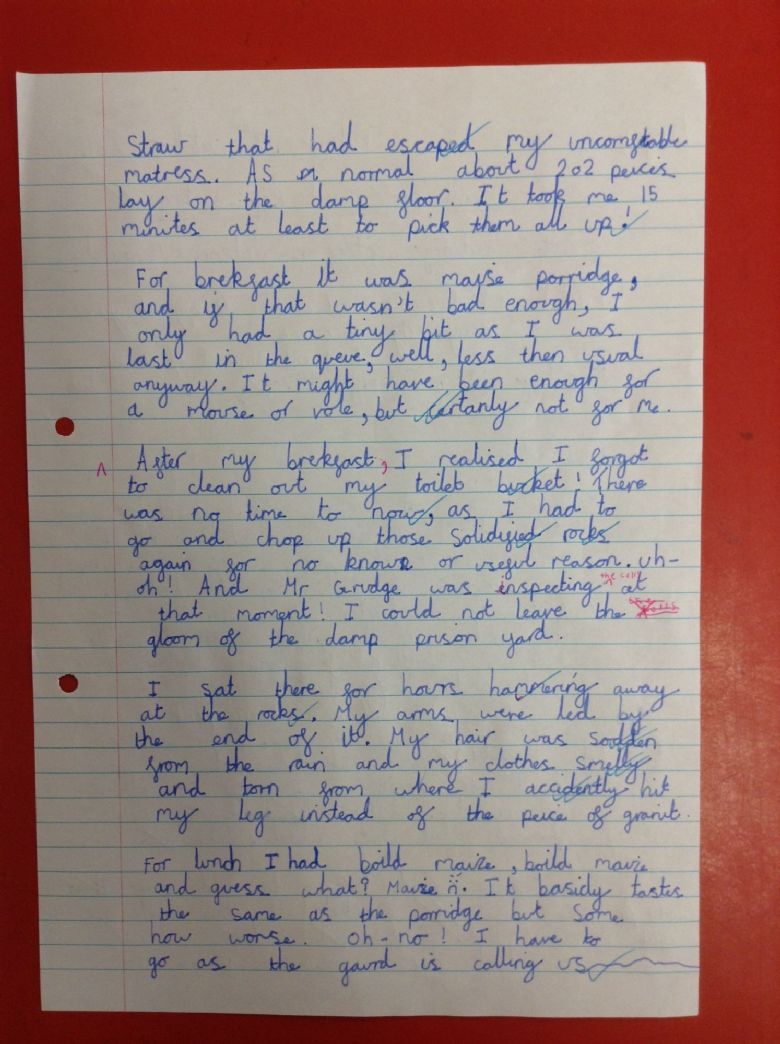 Straw that had escaped my uncomftable
matress. AS normal about 202 peices
lay on the damp floor. It took me 15
minites at least to pick them all up!
For brekfast it was maise porridge,
and if that wasn't bad enough, I
only had a tiny bit as I was
last in the queue, well, less then usual
anyway. It might have been enough for
a mouse or vole, but certanly not for me.
After my brekfast, I realised I forgot
to clean out my toilet bucket! There
was no time to now, as I had to
go and chop up those Solidified rocks
again for no known or useful reason. uh-
oh! And Mr Grudge was inspecting the cells at
that moment! I could not leave the
gloom of the damp prison yard.
I sat there for hours hammering away
at the rocks. My arms were led by
the end of it. My hair was sodden
from the rain and my clothes smelly
and torn from where I accidently hit
my leg instead of the peice of granit.
For lunch I had boild maize, boild maize
and guess what? Maize. It basicly tastes
the same as the porridge but Some
how worse. Oh-no! I have to
go as the gaurd is calling us